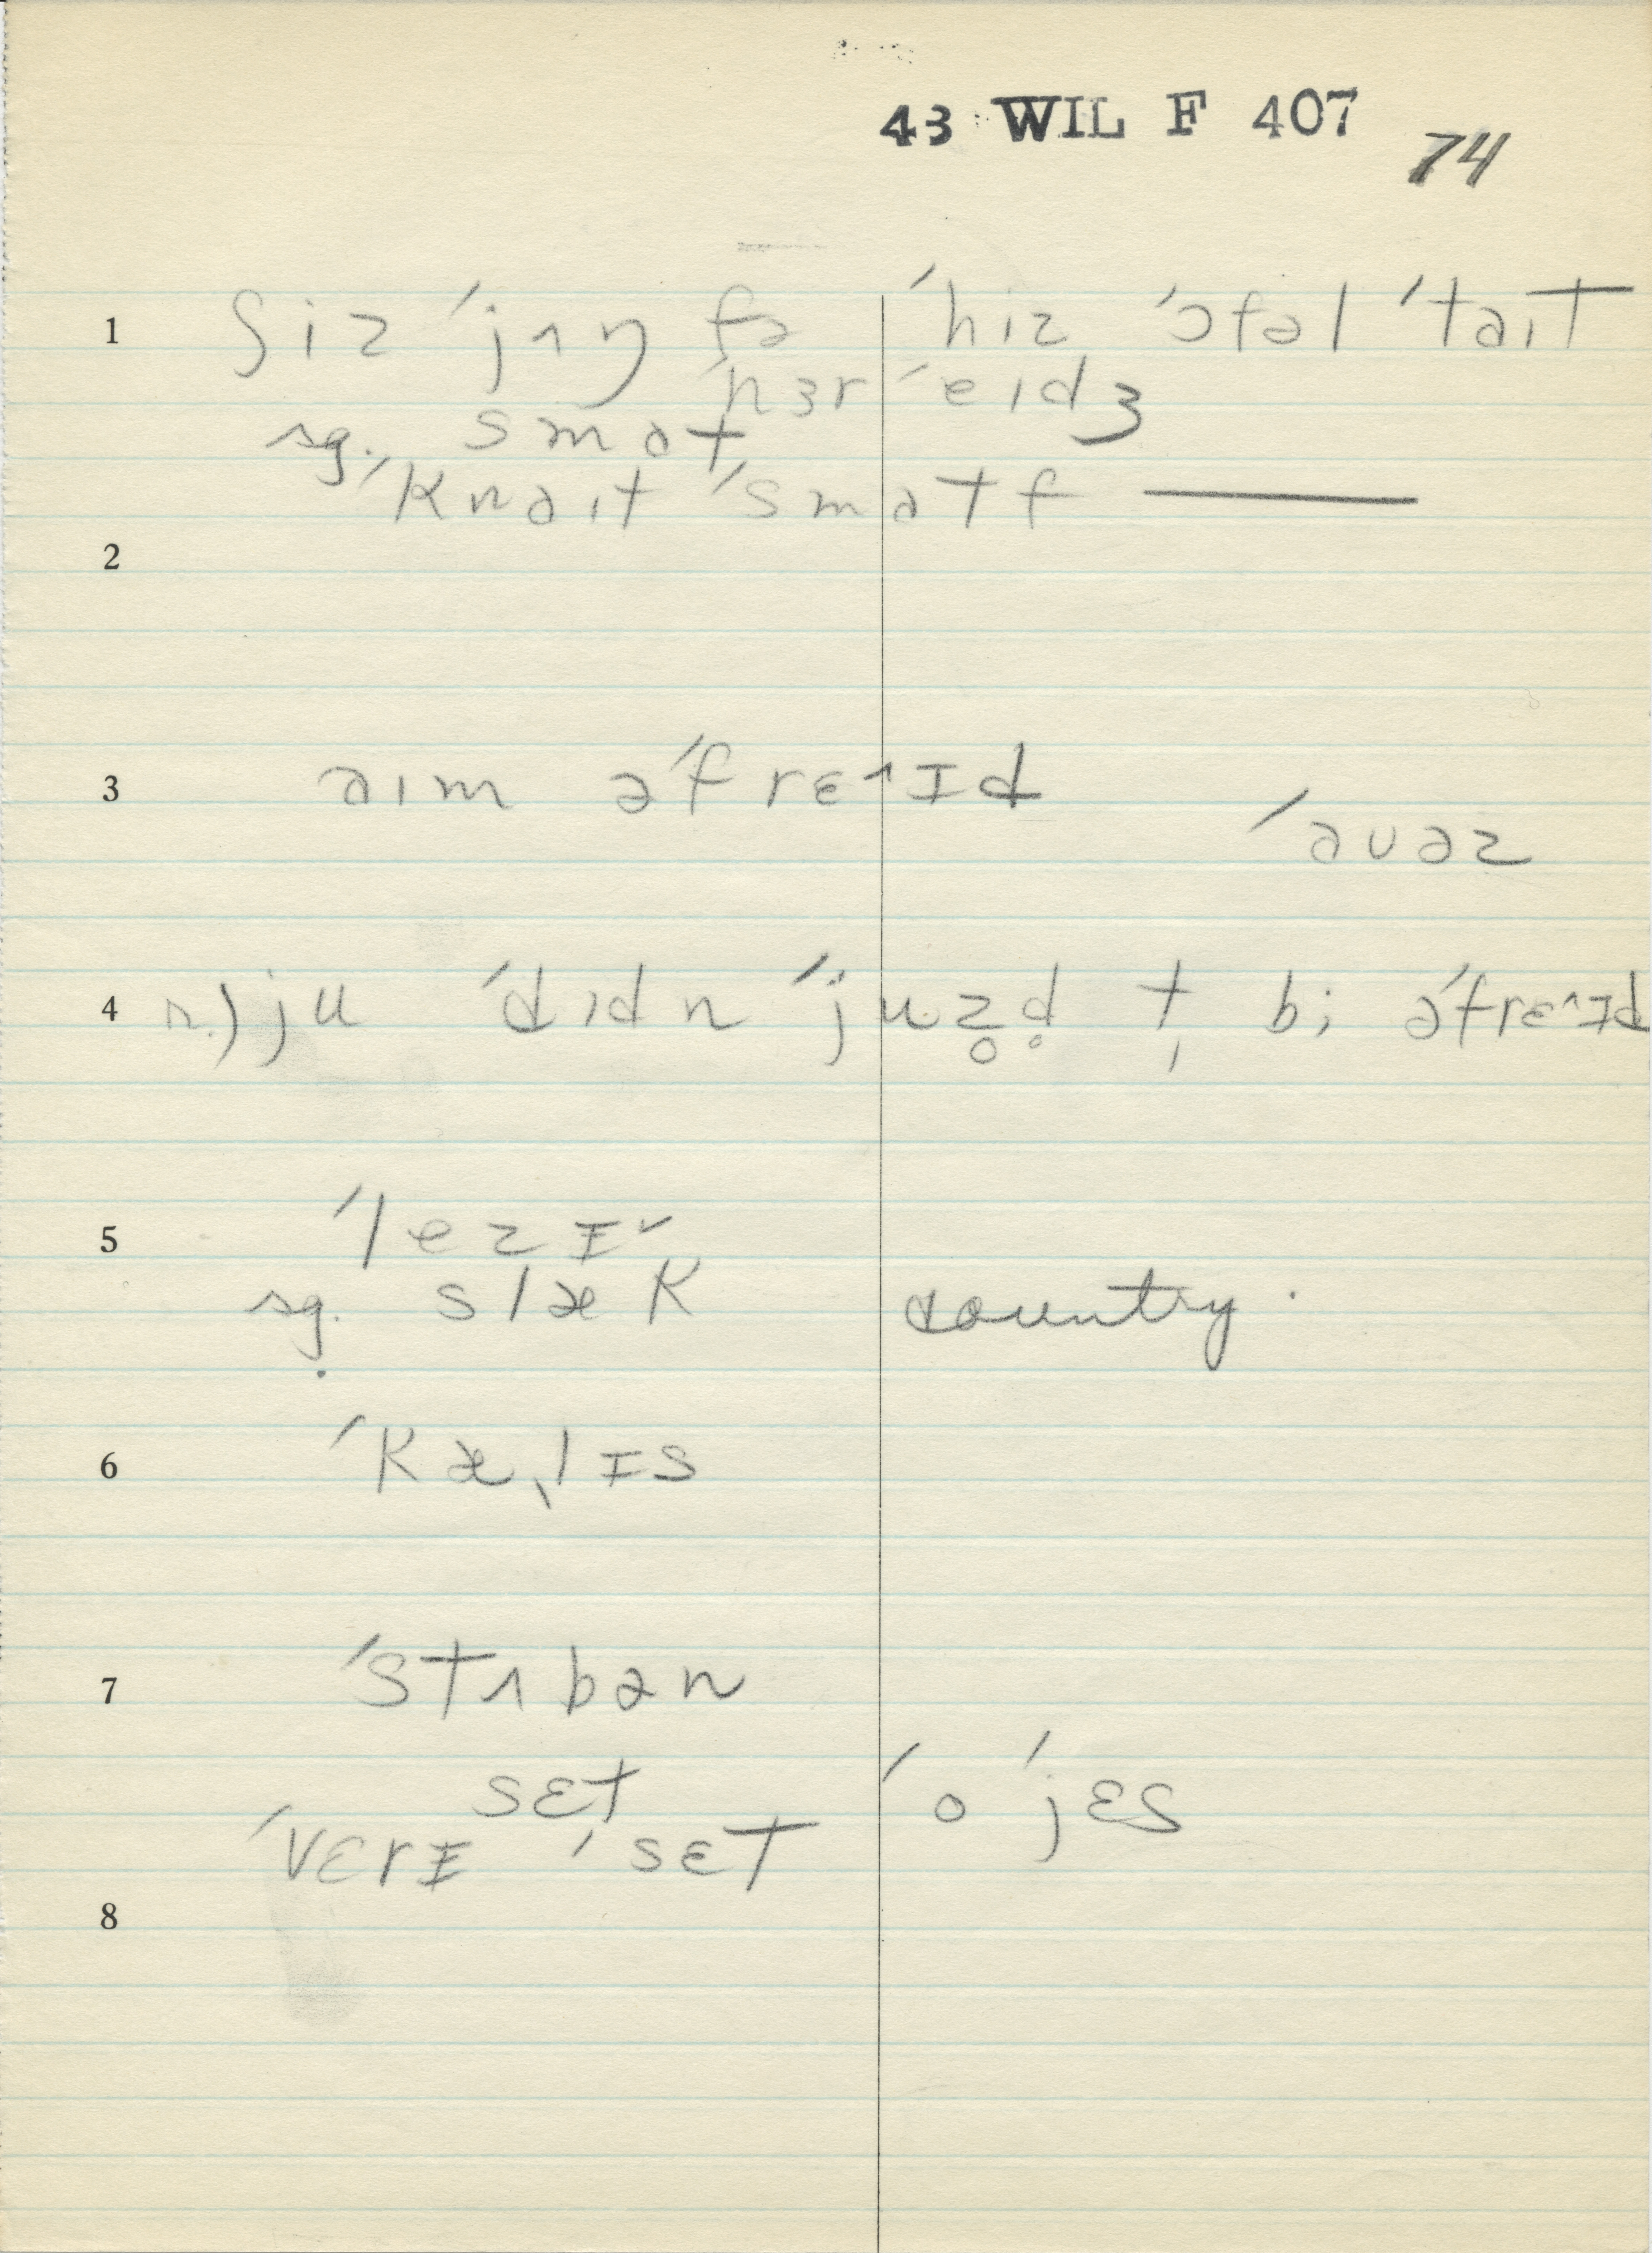 43 WIL F 407
74
1 ʃiz ˈjʌŋ fə ˈhiz ˈɔfəl ˈtaɪt
ˈhɜr ˈeɪdʒ
sg. smɑt
ˈknaɪt ˈsmɑtf ———
2
3 aɪm əˈfrɛ^ɪd
ˈauəz
4 n.) ju ˈdɪdn ˈjuz̥d̥ t̩ bi əˈfrɛ^ɪd
5 ˈlezɪˇ
sg. slæk country.
6 ˈkælɪs
7 ˈstʌbən
sɛt ˈo ˈjɛs
ˈvɛrɪ ˈsɛt
8